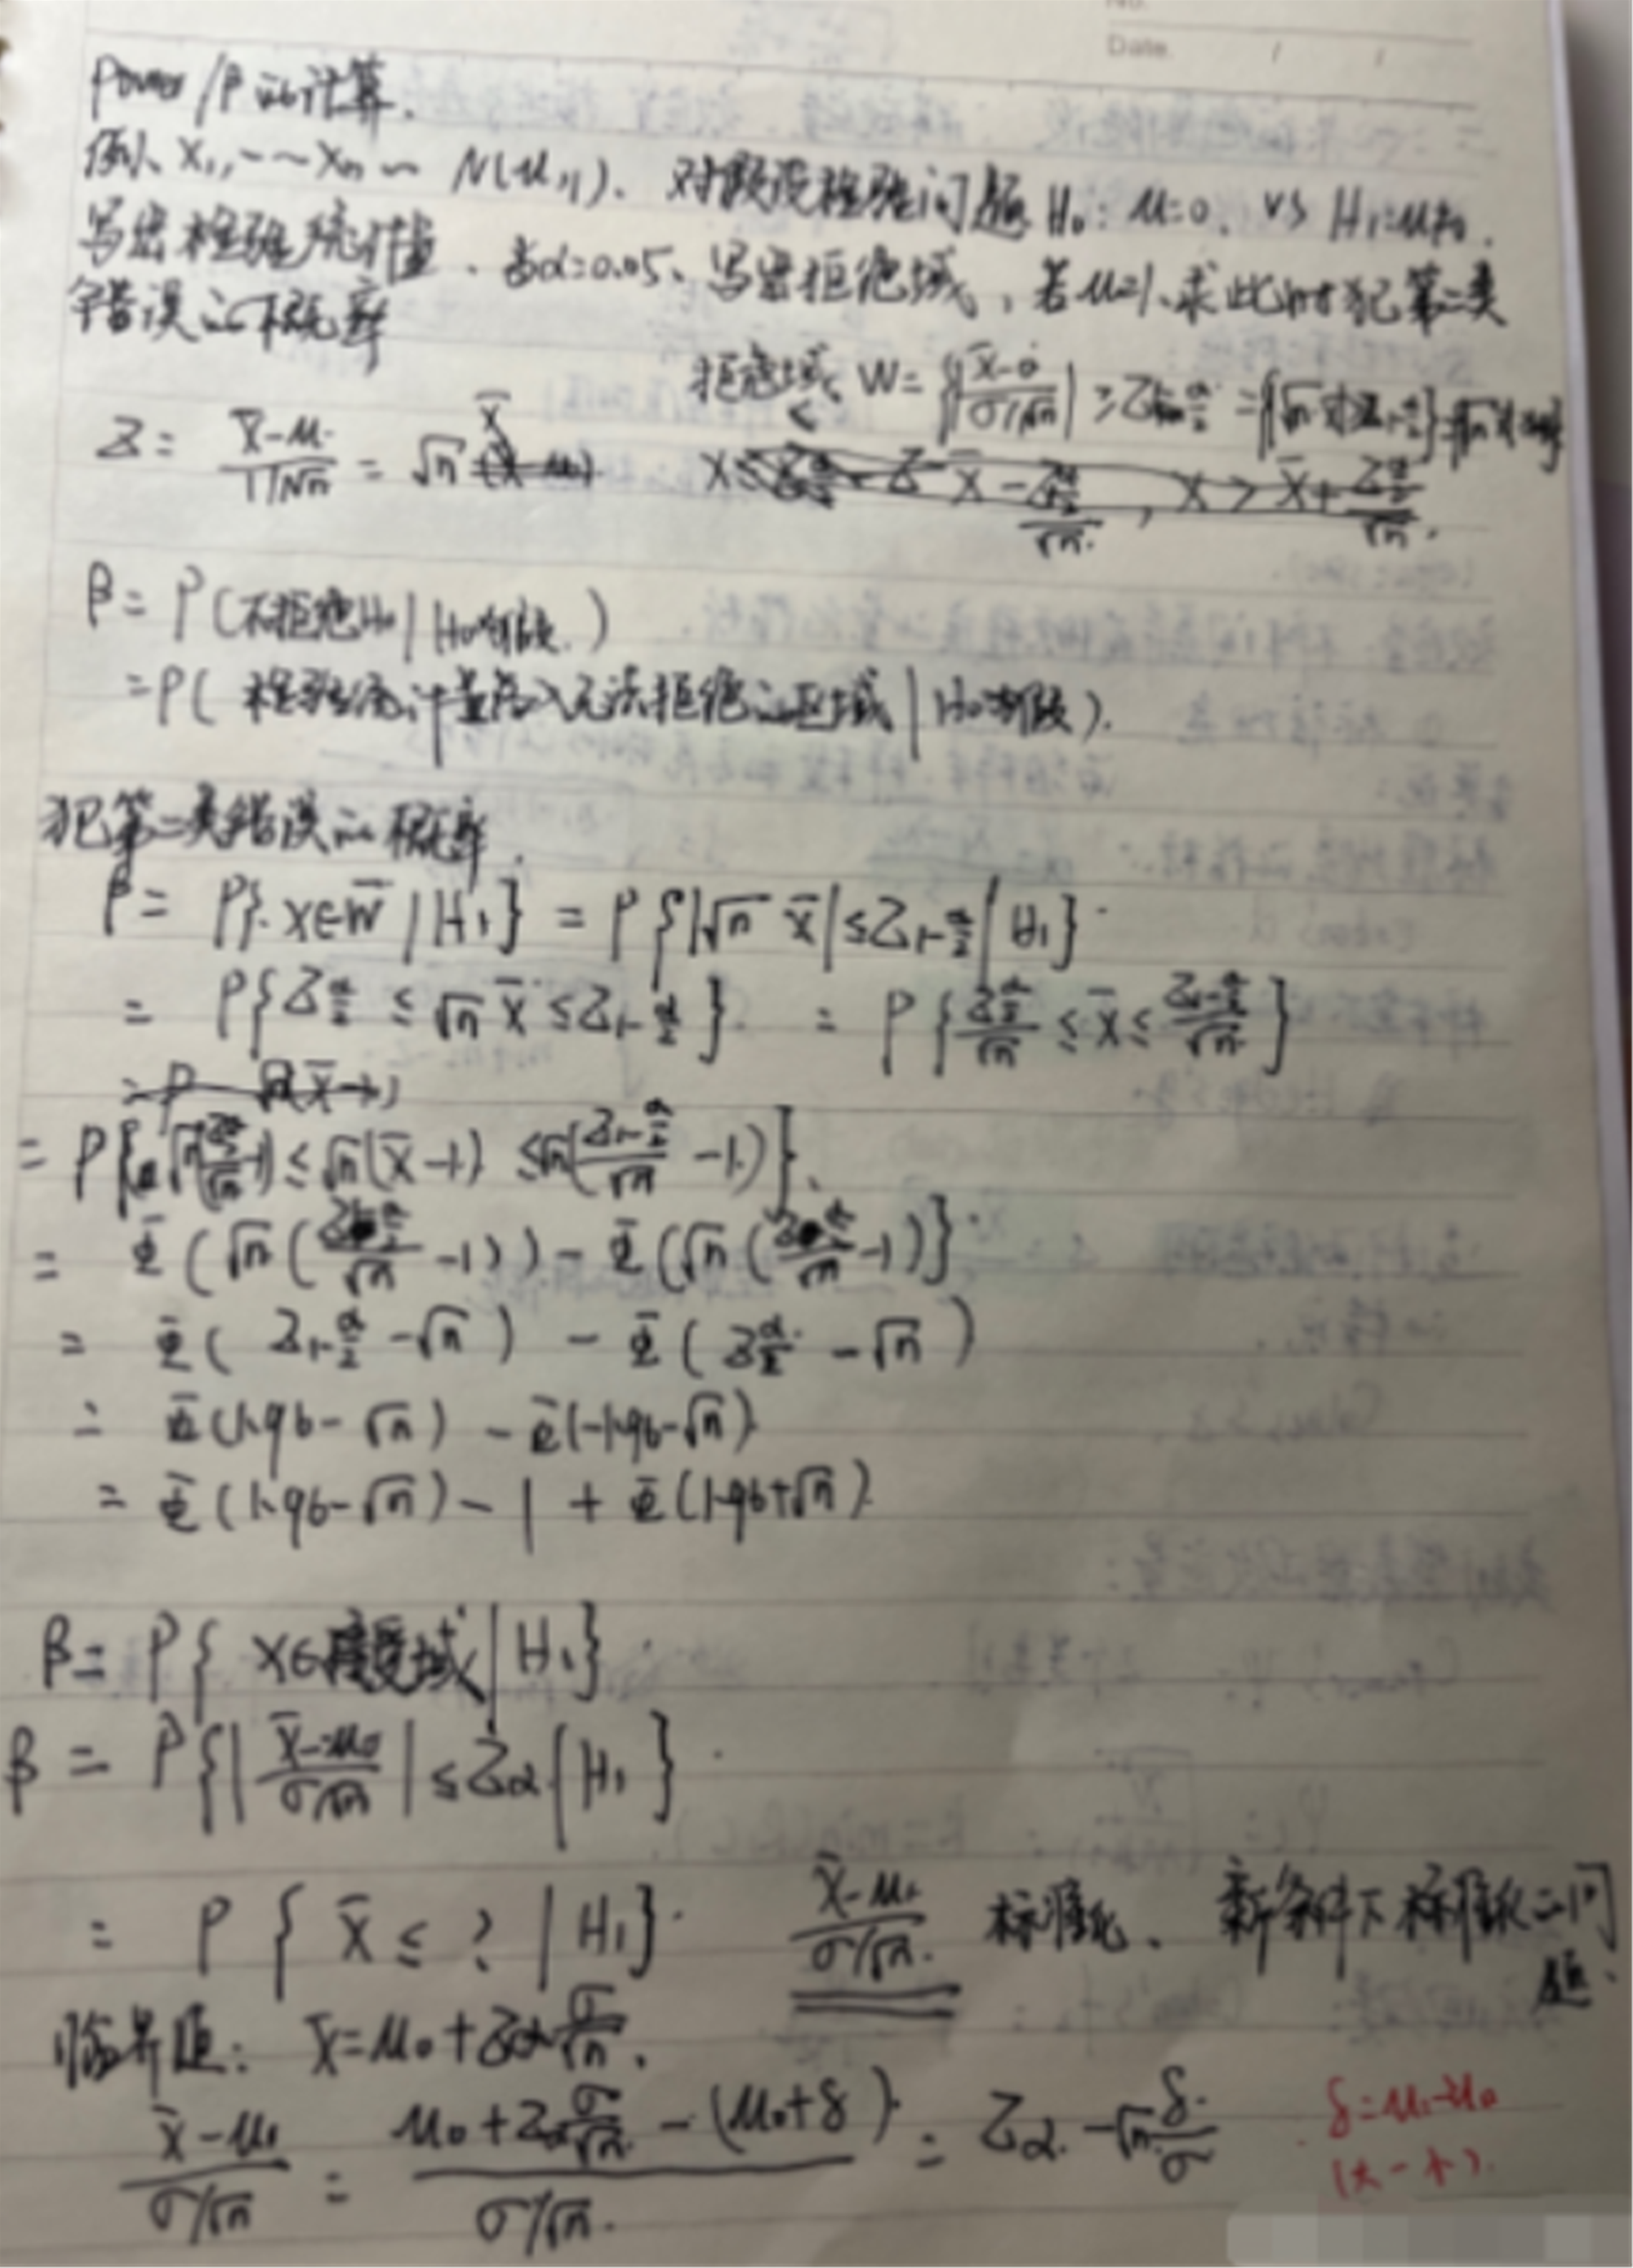 No.
Date. / /
Power / β 的计算.
例、X₁, ~~ Xn ~ N(μ,1). 对假设检验问题 H₀: μ=0. vs H₁: μ≠0.
写出检验统计量. 当α=0.05、写出拒绝域, 若μ=1、求此时犯第二类
错误的概率
拒绝域 W= {|(X̄-0)/(σ/√n)| ≥ Z₁₋α/₂
Z = (X̄-μ)/(1/√n) = √n X̄
β = P(不拒绝H₀ | H₀为假.)
=P( 检验统计量落入无法拒绝的区域 | H₀为假).
犯第二类错误的概率.
β = P{X∈W̄ | H₁} = P{|√n X̄| ≤ Z₁₋α/₂ | H₁}.
= P{Zα/₂ ≤ √n X̄ ≤ Z₁₋α/₂} = P{Zα/₂/√n ≤ X̄ ≤ Z₁₋α/₂/√n}
= P{√n(Zα/₂/√n -1) ≤ √n(X̄-1) ≤ √n(Z₁₋α/₂/√n -1)}.
= Φ(√n(Z₁₋α/₂/√n -1)) - Φ(√n(Zα/₂/√n -1)}
= Φ( Z₁₋α/₂ -√n ) - Φ( Zα/₂ -√n )
= Φ(1.96-√n) - Φ(-1.96-√n)
= Φ(1.96-√n) - 1 + Φ(1.96+√n).
β = P{ X∈接受域 | H₁}
β = P{| (X̄-μ₀)/(σ/√n) | ≤ Zα | H₁}.
= P { X̄ ≤ ? | H₁}. (X̄-μ₁)/(σ/√n) 标准化、新条件下标准化的问
题.
临界值: X̄=μ₀+Zα σ/√n.
(X̄-μ₁)/(σ/√n) = (μ₀+Zα σ/√n - (μ₀+δ))/(σ/√n) = Zα -√n δ/σ δ=μ₁-μ₀
(大-小).